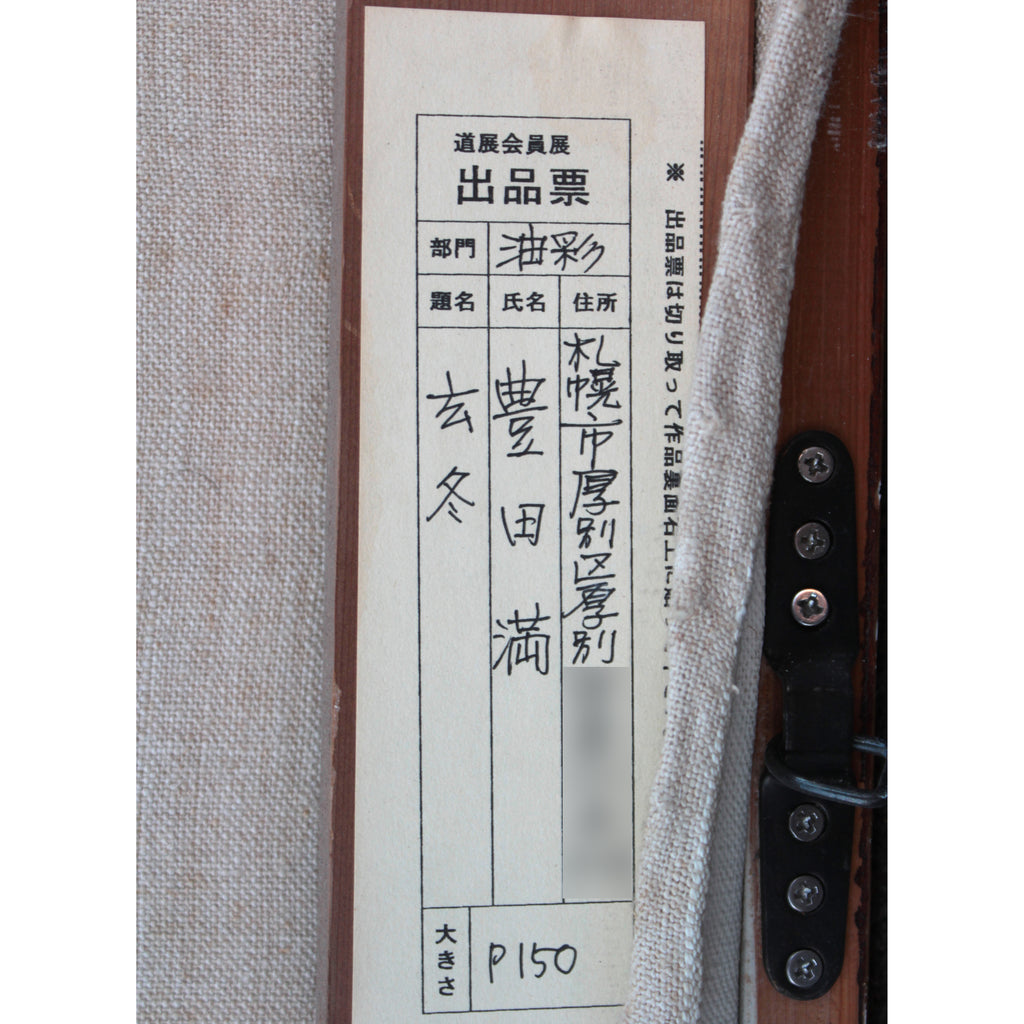 道展会員展
出品票
部門
油彩
題名
氏名
住所
玄冬
豊田満
札幌市厚別区厚別
大きさ
P150
※ 出品票は切り取って作品裏面右上に